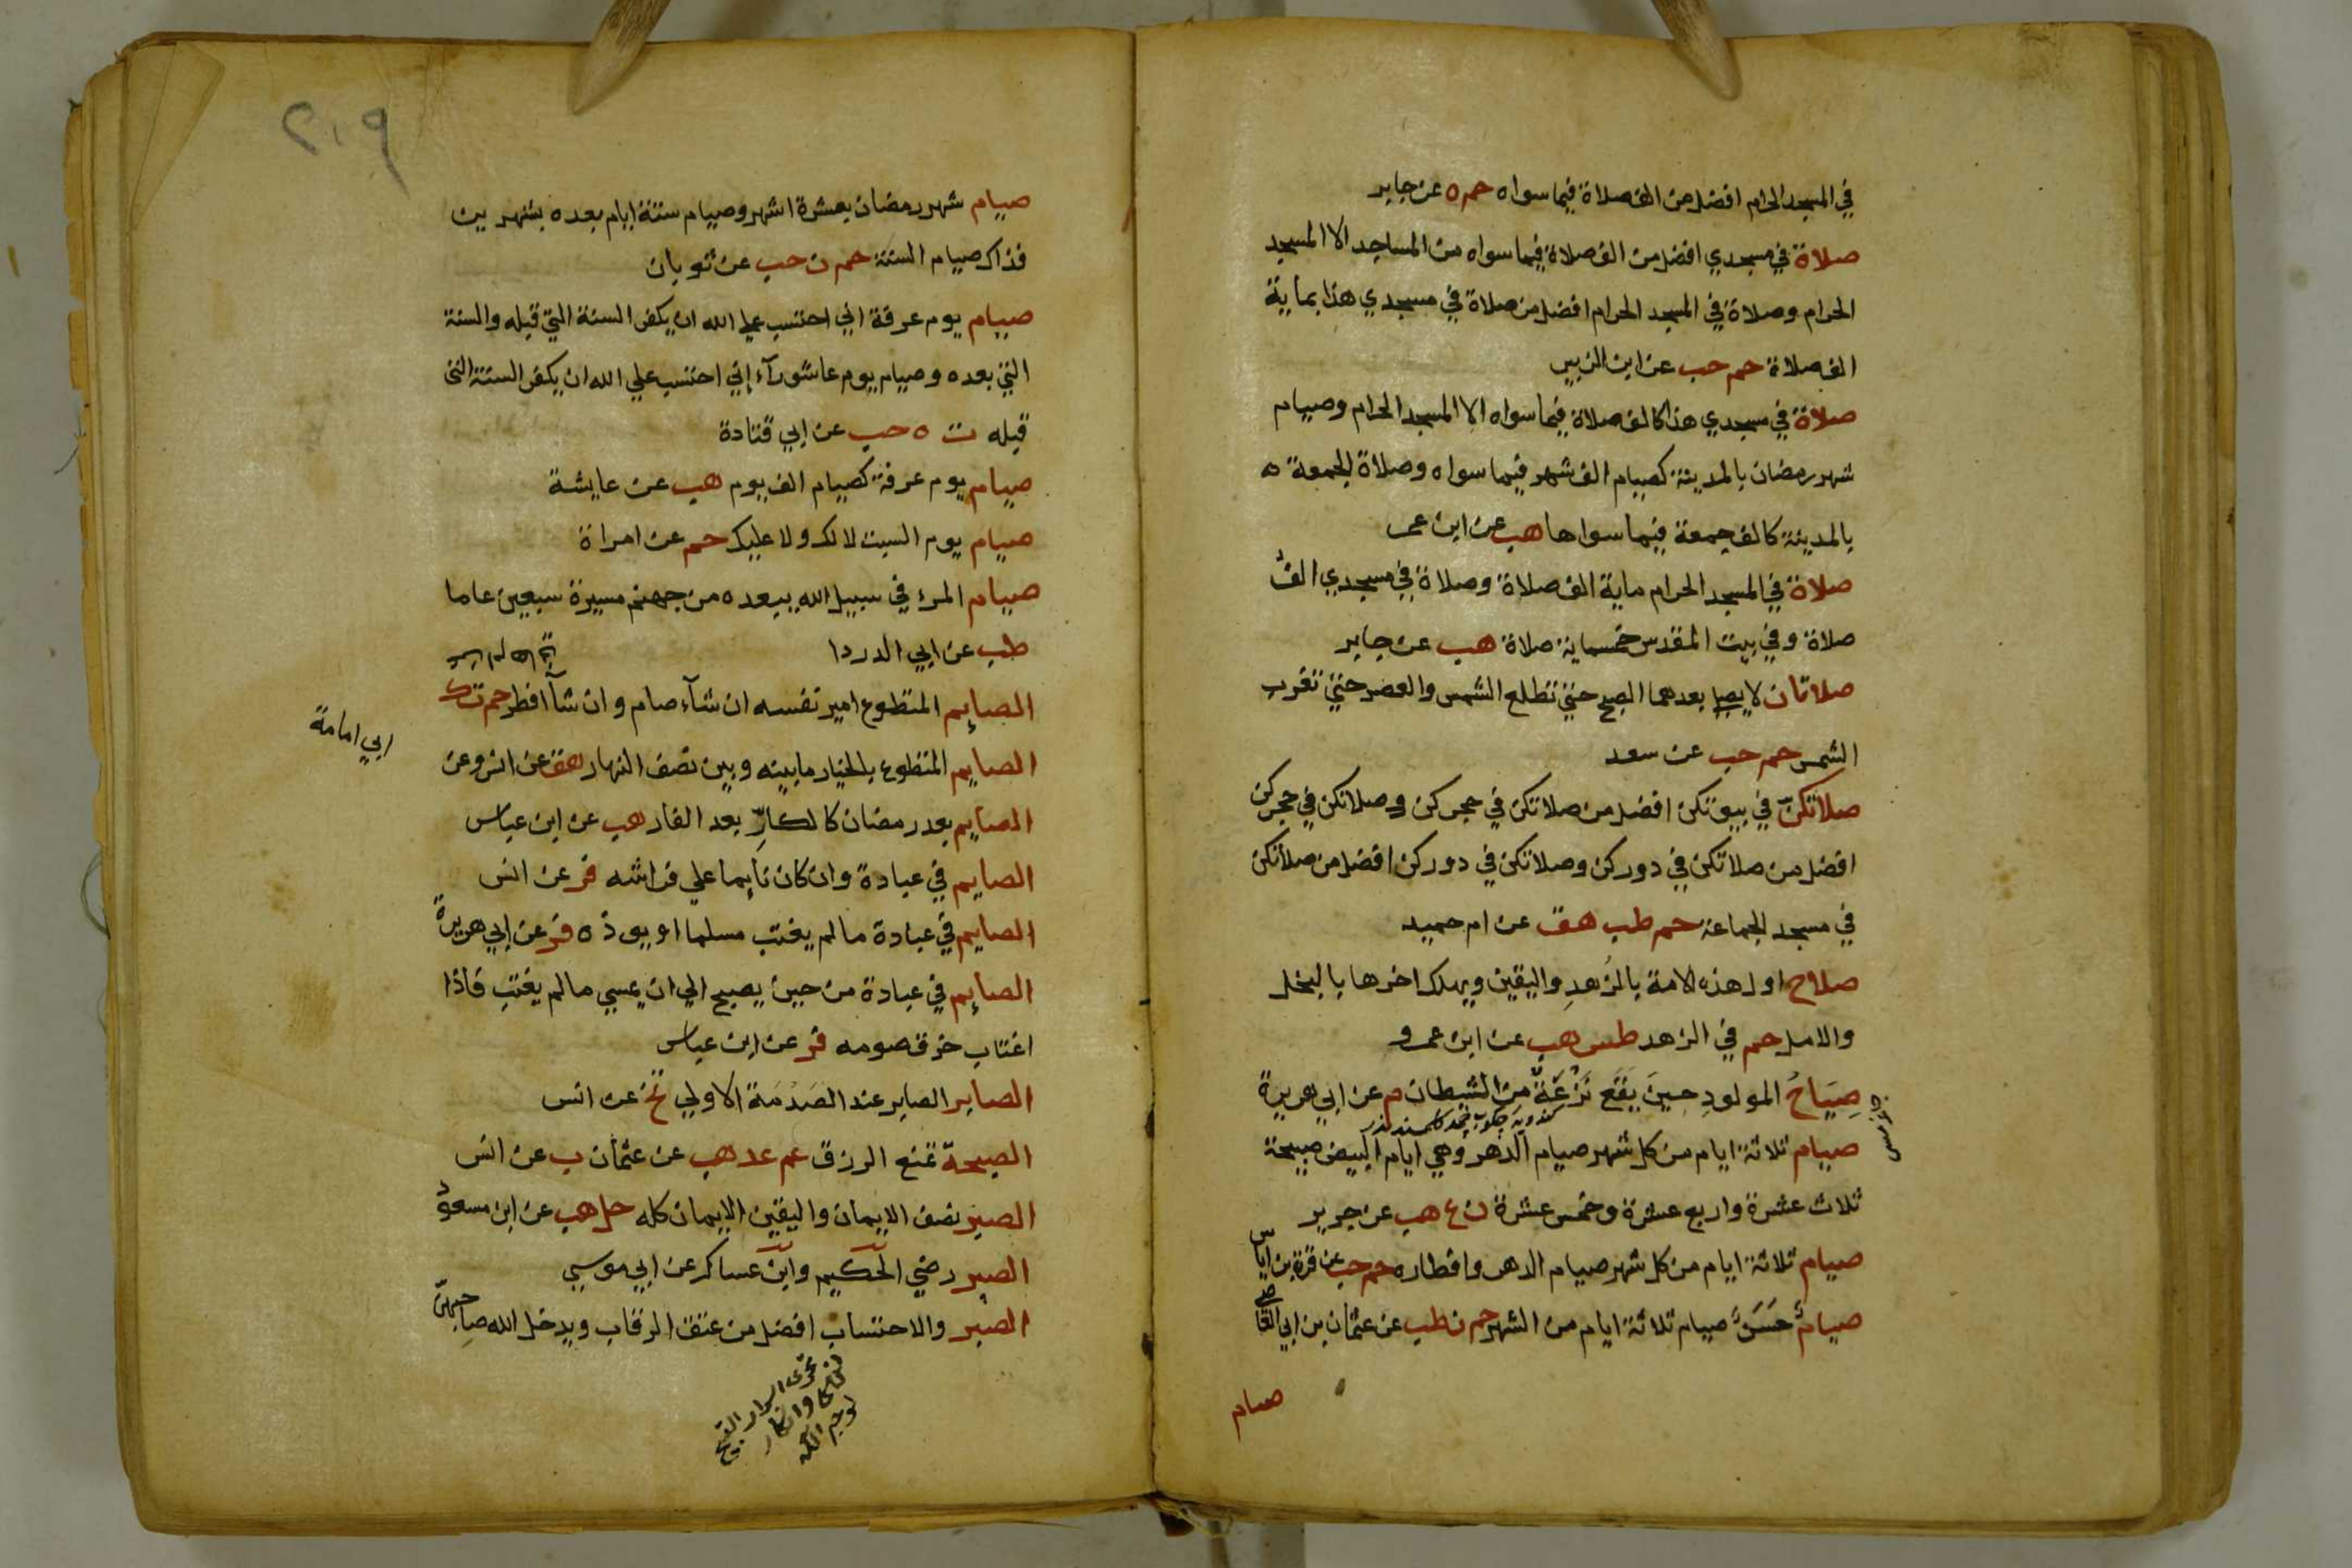 في المسجد الحرام افضل من الف صلاة فيما سواه حم ه عن جابر
صلاة في مسجدي افضل من الف صلاة فيما سواه من المساجد الا المسجد
الحرام وصلاة في المسجد الحرام افضل من صلاة في مسجدي هذا بماية
الف صلاة حم حب عن ابن الزبير
صلاة في مسجدي هذا كالف صلاة فيما سواه الا المسجد الحرام وصيام
شهر رمضان بالمدينة كصيام الف شهر فيما سواه وصلاة الجمعة ه
بالمدينة كالف جمعة فيما سواها هب عن ابن عمر
صلاة في المسجد الحرام ماية الف صلاة وصلاة في مسجدي الف
صلاة وفي بيت المقدس خمسماية صلاة هب عن جابر
صلاتان لا يصلى بعدهما الصبح حتى تطلع الشمس والعصر حتى تغرب
الشمس حم حب عن سعد
صلاتكنّ في بيوتكن افضل من صلاتكن في حجركن وصلاتكن في حجركن
افضل من صلاتكن في دوركن وصلاتكن في دوركن افضل من صلاتكن
في مسجد الجماعة حم طب هق عن ام حميد
صلاح اول هذه الامة بالزُهدِ واليقين ويهلك اخرها بالبخل
والامل حم في الزهد طس هب عن ابن عمرو
صِيَاحُ المولودِ حِينَ يَقَع نَزْغَةٌ من الشيطان م عن ابي هريرة
صيام ثلاثة ايام من كل شهر صيام الدهر وهي ايام البيض صبيحة
ثلاث عشرة واربع عشرة وخمس عشرة ن ع هب عن جرير
صيام ثلاثة ايام من كل شهر صيام الدهر وافطاره حم حب عن قرة بن اياس
صيامٌ حَسَنٌ صيام ثلاثة ايام من الشهر حم ن طب عن عثمان بن ابي العاص
صيام
٢٠٩
صيام شهر رمضان بعشرة اشهر وصيام ستة ايام بعده بشهرين
فذاك صيام السنة حم ن حب عن ثوبان
صيام يوم عرفة اني احتسب على الله ان يكفر السنة التي قبله والسنة
التي بعده وصيام يوم عاشورآء إني احتسب علي الله ان يكفر السنة التي
قبله ت ه حب عن ابي قتادة
صيام يوم عرفة كصيام الف يوم هب عن عايشة
صيام يوم السبت لا لك ولا عليك حم عن امراة
صيام المرء في سبيل الله يبعده من جهنم مسيرة سبعين عاما
طب عن ابي الدردا
الصايم المتطوع امير نفسه ان شآء صام وان شآ افطر حم ت ك
الصايم المتطوع بالخيار ما بينه وبين نصف النهار هق عن انس وعن
ابي امامة
الصايم بعد رمضان كالكارِّ بعد الفار هب عن ابن عباس
الصايم في عبادة وان كان نايما علي فراشه فر عن انس
الصايم في عبادة ما لم يغتب مسلما او يوذه فر عن ابي هريرة
الصايم في عبادة من حين يصبح الي ان يمسي ما لم يغتب فاذا
اغتاب خرق صومه فر عن ابن عباس
الصابر الصابر عند الصَدْمَة الاولي تخ عن انس
الصبحة تمنع الرزق عم عد هب عن عثمان ب عن انس
الصبر نصف الايمان واليقين الايمان كله حل هب عن ابن مسعود
الصبر رضي الحكيم وابن عساكر عن ابي موسي
الصبر والاحتساب افضل من عتق الرقاب ويدخل الله صاحبهنّ